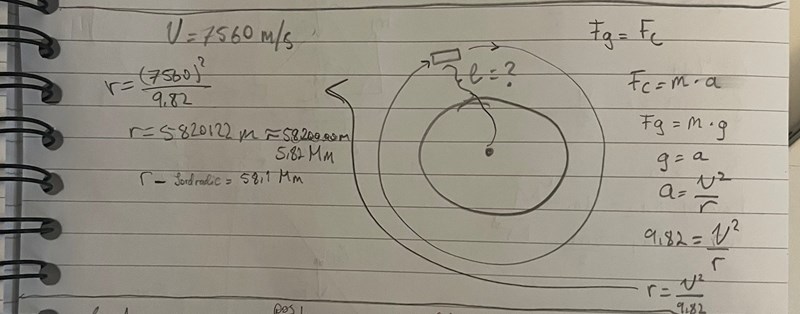 V = 7560 m/s
r = (7560)²/9,82
r = 5820122 m ≈ 5820000m
5,82 Mm
r - = 58,1 Mm
l = ?
Fg = Fc
Fc = m · a
Fg = m · g
g = a
a = v²/r
9,82 = v²/r
r = v²/9,82